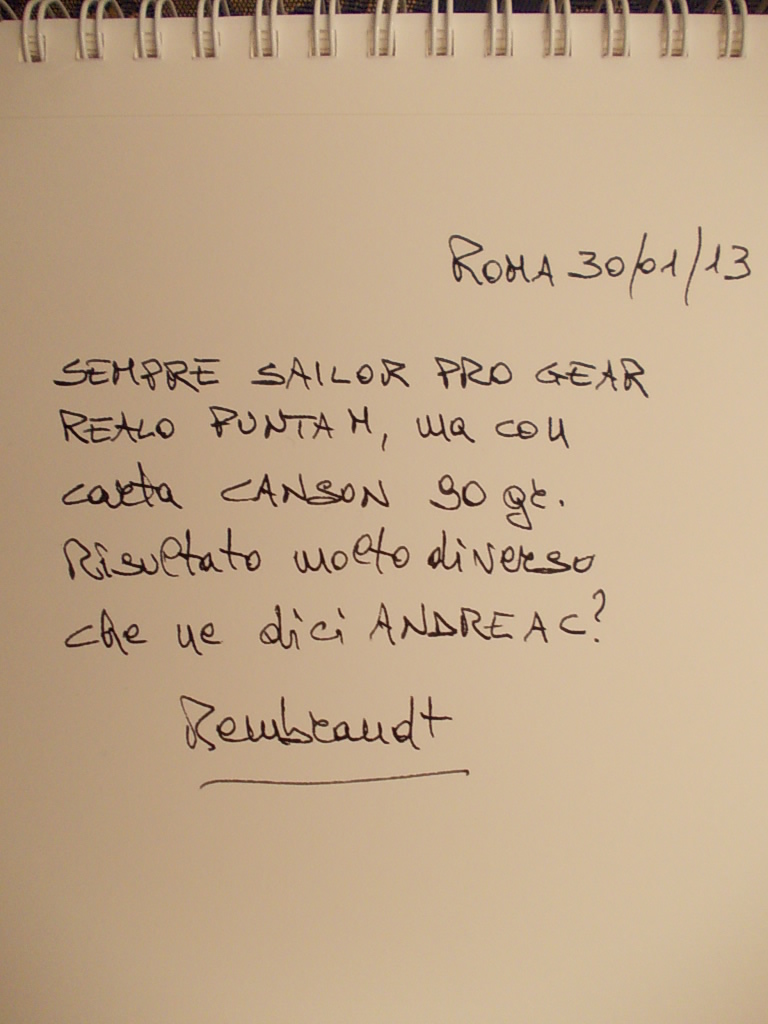 ROMA 30/01/13
SEMPRE SAILOR PRO GEAR
REALO PUNTA M, ma con
carta CANSON 90 gr.
Risultato molto diverso
che ne dici ANDREA C?
Rembrandt